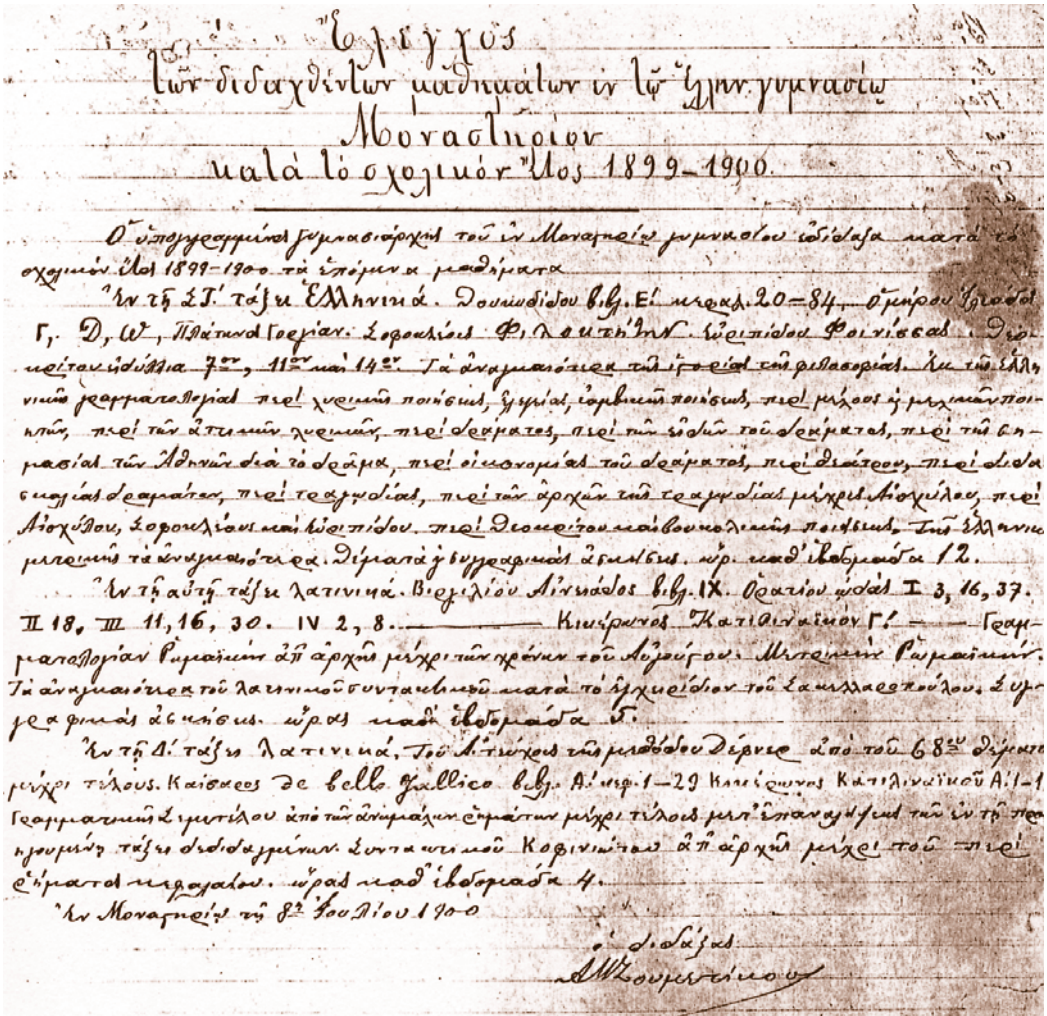 Ἔλεγχος
τῶν διδαχθέντων μαθημάτων ἐν τῷ Ἑλλην. γυμνασίῳ
Μοναστηρίου
κατὰ τὸ σχολικὸν ἔτος 1899-1900.
Ὁ ὑπογεγραμμένος Γυμνασιάρχης τοῦ ἐν Μοναστηρίῳ γυμνασίου ἐδίδαξα κατὰ τὸ
σχολικὸν ἔτος 1899-1900 τὰ ἑπόμενα μαθήματα
Ἐν τῇ ΣΤ΄ τάξει Ἑλληνικά. Θουκυδίδου βιβλ. Ε΄ κεφαλ. 20-84, Ὁμήρου Ἰλιάδος
Γ, D, W, Πλάτωνος Γοργίαν. Σοφοκλέους Φιλοκτήτην. Εὐριπίδου Φοινίσσας. Θεο-
κρίτου εἰδύλλια 7ον, 11ον καὶ 14ον. Τὰ ἀναγκαιότερα τῆς ἱστορίας τῆς φιλοσοφίας. Ἐκ τῆς Ἑλλη
νικῆς γραμματολογίας περὶ λυρικῆς ποιήσεως, ἐλεγείας, ἰαμβικῆς ποιήσεως, περὶ μέλους ἢ μελικῶν ποι-
ητῶν, περὶ τῶν ἀττικῶν λυρικῶν, περὶ δράματος, περὶ τῶν εἰδῶν τοῦ δράματος, περὶ τῆς ση-
μασίας τῶν Ἀθηνῶν διὰ τὸ δρᾶμα, περὶ οἰκονομίας τοῦ δράματος, περὶ θεάτρου, περὶ διδα
σκαλίας δραμάτων, περὶ τραγῳδίας, περὶ τῶν ἀρχῶν τῆς τραγῳδίας μέχρις Αἰσχύλου, περὶ
Αἰσχύλου, Σοφοκλέους καὶ Εὐριπίδου. περὶ Θεοκρίτου καὶ βουκολικῆς ποιήσεως. Τῆς Ἑλληνικ
μετρικῆς τὰ ἀναγκαιότερα. Θέματα ἢ συγγραφικὰς ἀσκήσεις. ὥρ. καθ' ἑβδομάδα 12.
Ἐν τῇ αὐτῇ τάξει λατινικά. Βιργιλίου Αἰνειάδος βιβλ. IX. Ὁρατίου ᾠδὰς I 3, 16, 37.
II 18, III 11, 16, 30. IV 2, 8. — Κικέρωνος Κατιλιναϊκὸν Γ΄. — Γραμ-
ματολογίαν Ῥωμαϊκὴν ἀπ' ἀρχῆς μέχρι τῶν χρόνων τοῦ Αὐγούστου. Μετρικὴν Ῥωμαϊκήν.
Τὰ ἀναγκαιότερα τοῦ λατινικοῦ συντακτικοῦ κατὰ τὸ ἐγχειρίδιον τοῦ Σακελλαροπούλου. Συγ-
γραφικὰς ἀσκήσεις. ὥρας καθ' ἑβδομάδα 5.
Ἐν τῇ Δ΄ τάξει λατινικά. Τοῦ Α΄ τεύχους τῆς μεθόδου Δέρνερ ἀπὸ τοῦ 68ου θέματο
μέχρι τέλους. Καίσαρος de bello Gallico βιβλ. Α΄ κεφ. 1-29 Κικέρωνος Κατιλιναϊκοῦ Α΄. 1-1
Γραμματικῆς Σεμιτέλου ἀπὸ τῶν ἀνωμάλων ῥημάτων μέχρι τέλους μετ' ἐπαναλήψεως τῶν ἐν τῇ προ
ηγουμένῃ τάξει δεδιδαγμένων. Συντακτικοῦ Κοφινιώτου ἀπ' ἀρχῆς μέχρι τοῦ περὶ
ῥήματος κεφαλαίου. ὥρας καθ' ἑβδομάδα 4.
Ἐν Μοναστηρίῳ τῇ 8ῃ Ἰουλίου 1900
ὁ διδάξας
ΑΜΖουμετίκου